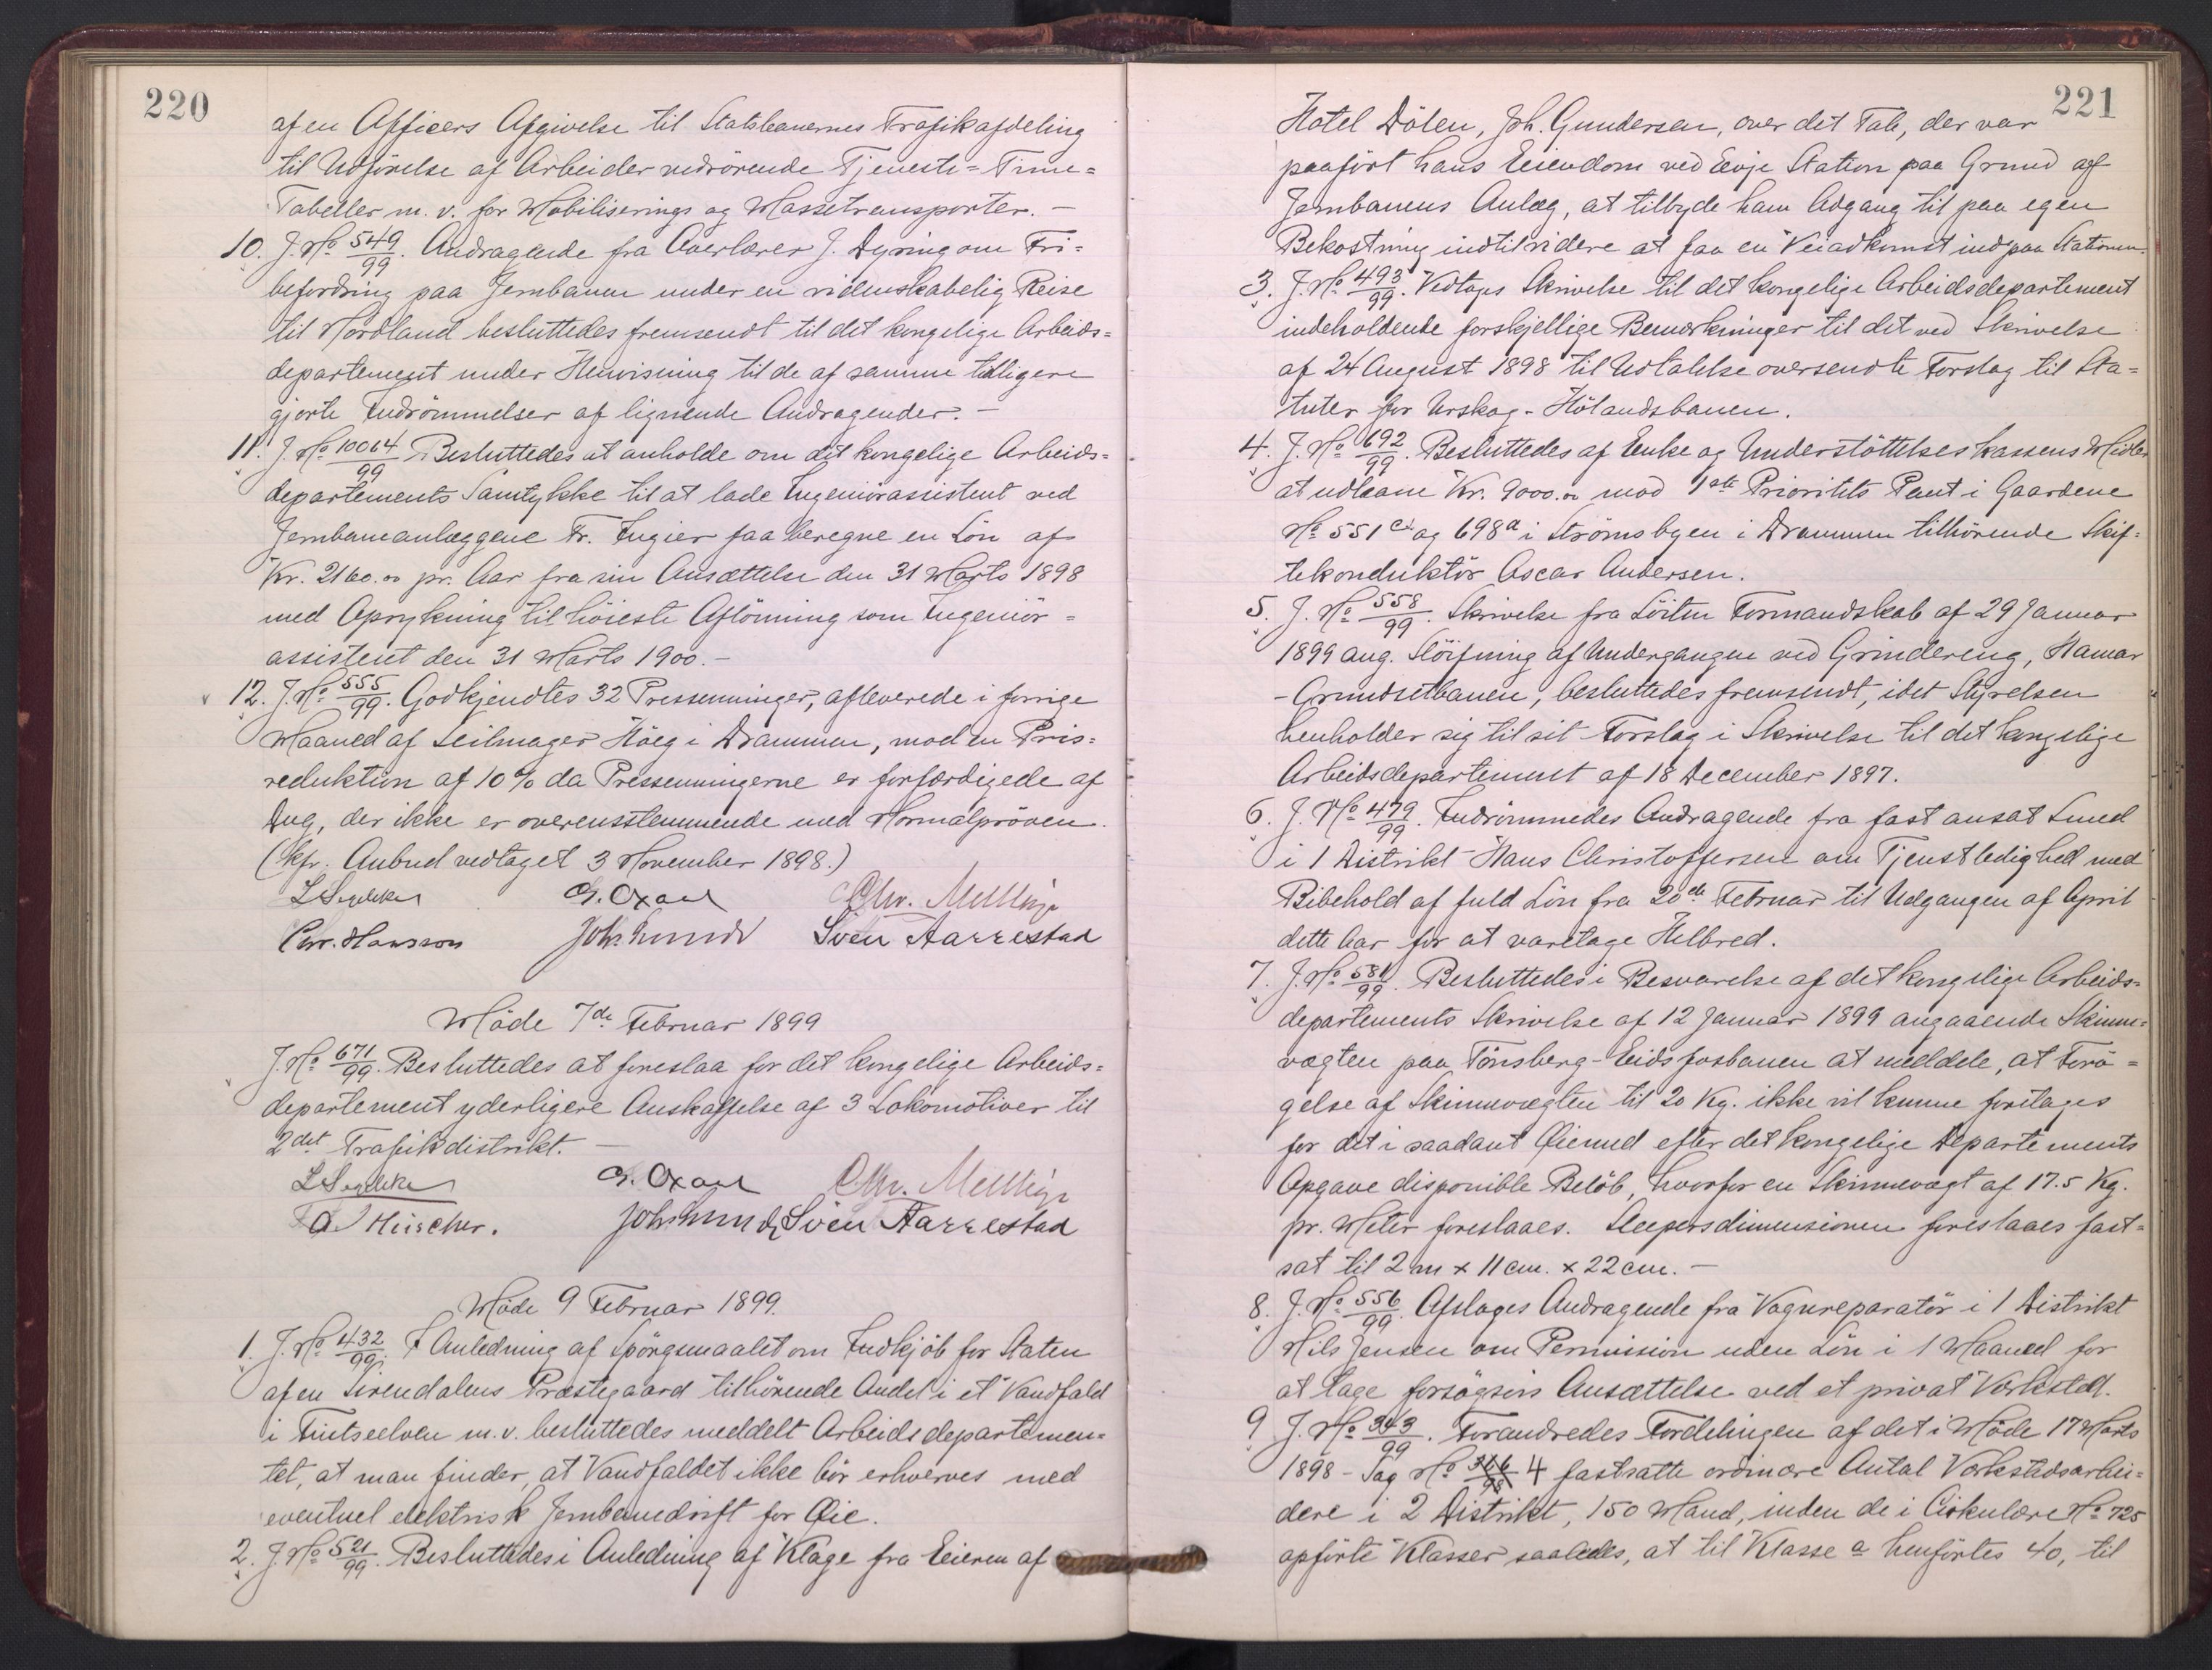 220
af en Officers Afgivelse til Statsbanernes Trafikafdeling
til Udførelse af Arbeider vedrørende Tjeneste-Time-
Tabeller m. v. for Mobiliserings og Massetransporter. —
10. J. No 549/99. Andragende fra Overlærer J. Dyring om Fri-
befordring paa Jernbanen under en videnskabelig Reise
til Nordland besluttedes fremsendt til det kongelige Arbeids-
departement under Henvisning til de af samme tidligere
gjorte Indrømmelser af lignende Andragender. —
11. J. No 10064/99 Besluttedes at anholde om det kongelige Arbeids-
departements Samtykke til at lade Ingeniørassistent ved
Jernbaneanlæggene Fr. Ingier faa beregne en Løn af
Kr. 2160.00 pr. Aar fra sin Ansættelse den 31 Marts 1898
med Oprykning til høieste Aflønning som Ingeniør-
assistent den 31 Marts 1900. —
12. J. No 555/99. Godkjendtes 32 Pressenninger, afleverede i forrige
Maaned af Seilmager Höeg i Drammen, mod en Pris-
reduktion af 10 % da Pressenningerne er forfærdigede af
Dug, der ikke er overensstemmende med Normalprøven.
(kfr. Anbud vedtaget 3 November 1898.)
G. Oxaal Chr.
Chr. Hansson Joh. Lund Sven Aarrestad
Møde 7de Februar 1899
J. No 671/99. Besluttedes at foreslaa for det kongelige Arbeids-
departement yderligere Anskaffelse af 3 Lokomotiver til
2det Trafikdistrikt. —
G. Oxaal Chr.
Joh. Lund Sven Aarrestad
Møde 9 Februar 1899.
1. J. No 432/99. I Anledning af Spørgsmaalet om Indkjøb for Staten
af en Sirendalens Præstegaard tilhørende Andel i et Vandfald
i m. v. besluttedes meddelt Arbeidsdepartemen-
tet, at man finder, at Vandfaldet ikke bør erhverves med
eventuel elektrisk Jernbanedrift for Øie.
2. J. No 521/99. Besluttedes i Anledning af Klage fra Eieren af
221
Hotel Dölen, Joh. Gundersen, over det Tab, der var
paaført hans Eiendom ved Evje Station paa Grund af
Jernbanens Anlæg, at tilbyde ham Adgang til paa egen
Bekostning indtilvidere at faa en Veiadkomst ind paa Stationen.
3. J. No 493/99. Vedtoges Skrivelse til det kongelige Arbeidsdepartement
indeholdende forskjellige Bemærkninger til det ved Skrivelse
af 24 August 1898 til Udtalelse oversendte Forslag til Sta-
tuter for Urskog-Hölandsbanen.
4. J. No 692/99. Besluttedes af Enke og Understøttelseskassens Midler
at udlaane Kr. 9000.00 mod 1ste Prioritets Pant i Gaardene
No 551 c og 698 a i Strømsbyen i Drammen tilhørende Skif-
tekonduktør Oscar Andersen.
5. J. No 558/99. Skrivelse fra Løiten Formandskab af 29 Januar
1899 ang. Sløifning af Undergangen ved Grindereng, Hamar
-Grundsetbanen, besluttedes fremsendt, idet Styrelsen
henholder sig til sit Forslag i Skrivelse til det kongelige
Arbeidsdepartement af 18 December 1897.
6. J. No 479/99. Indrømmedes Andragende fra fast ansat Smed
i 1 Distrikt Hans Christoffersen om Tjenstledighed med
Bibehold af fuld Løn fra 20de Februar til Udgangen af April
dette Aar for at varetage Helbred.
7. J. No 581/99. Besluttedes i Besvarelse af det kongelige Arbeids-
departements Skrivelse af 12 Januar 1899 angaaende Skinne-
vægten paa Tønsberg-Eidsfosbanen at meddele, at Forø-
gelse af Skinnevægten til 20 Kg. ikke vil kunne foretages
for det i saadant Øiemed efter det kongelige Departements
Opgave disponible Beløb, hvorfor en Skinnevægt af 17.5 Kg.
pr. Meter foreslaaes. Sleepersdimensionen foreslaaes fast-
sat til 2 m x 11 cm. x 22 cm. —
8. J. No 556/99. Afsloges Andragende fra Vognreparatør i 1 Distrikt
Nils Jensen om Permission uden Løn i 1 Maaned for
at tage forsøgsvis Ansættelse ved et privat Værksted.
9 J. No 343/99. Forandredes Fordelingen af det i Møde 17 Marts
1898 - Sag No 4 fastsatte ordinære Antal Værkstedsarbei-
dere i 2 Distrikt, 150 Mand, inden de i Cirkulære No 725
opførte Klasser saaledes, at til Klasse a henførtes 40, til